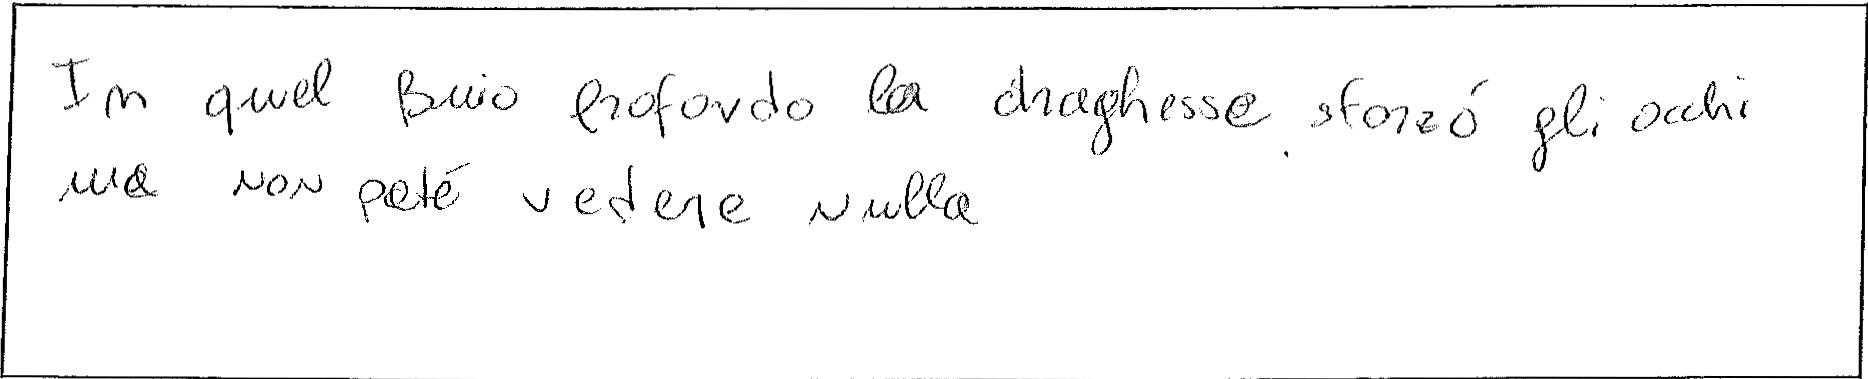 In quel Buio profondo la draghessa sforzó gli occhi
ma non poté vedere nulla